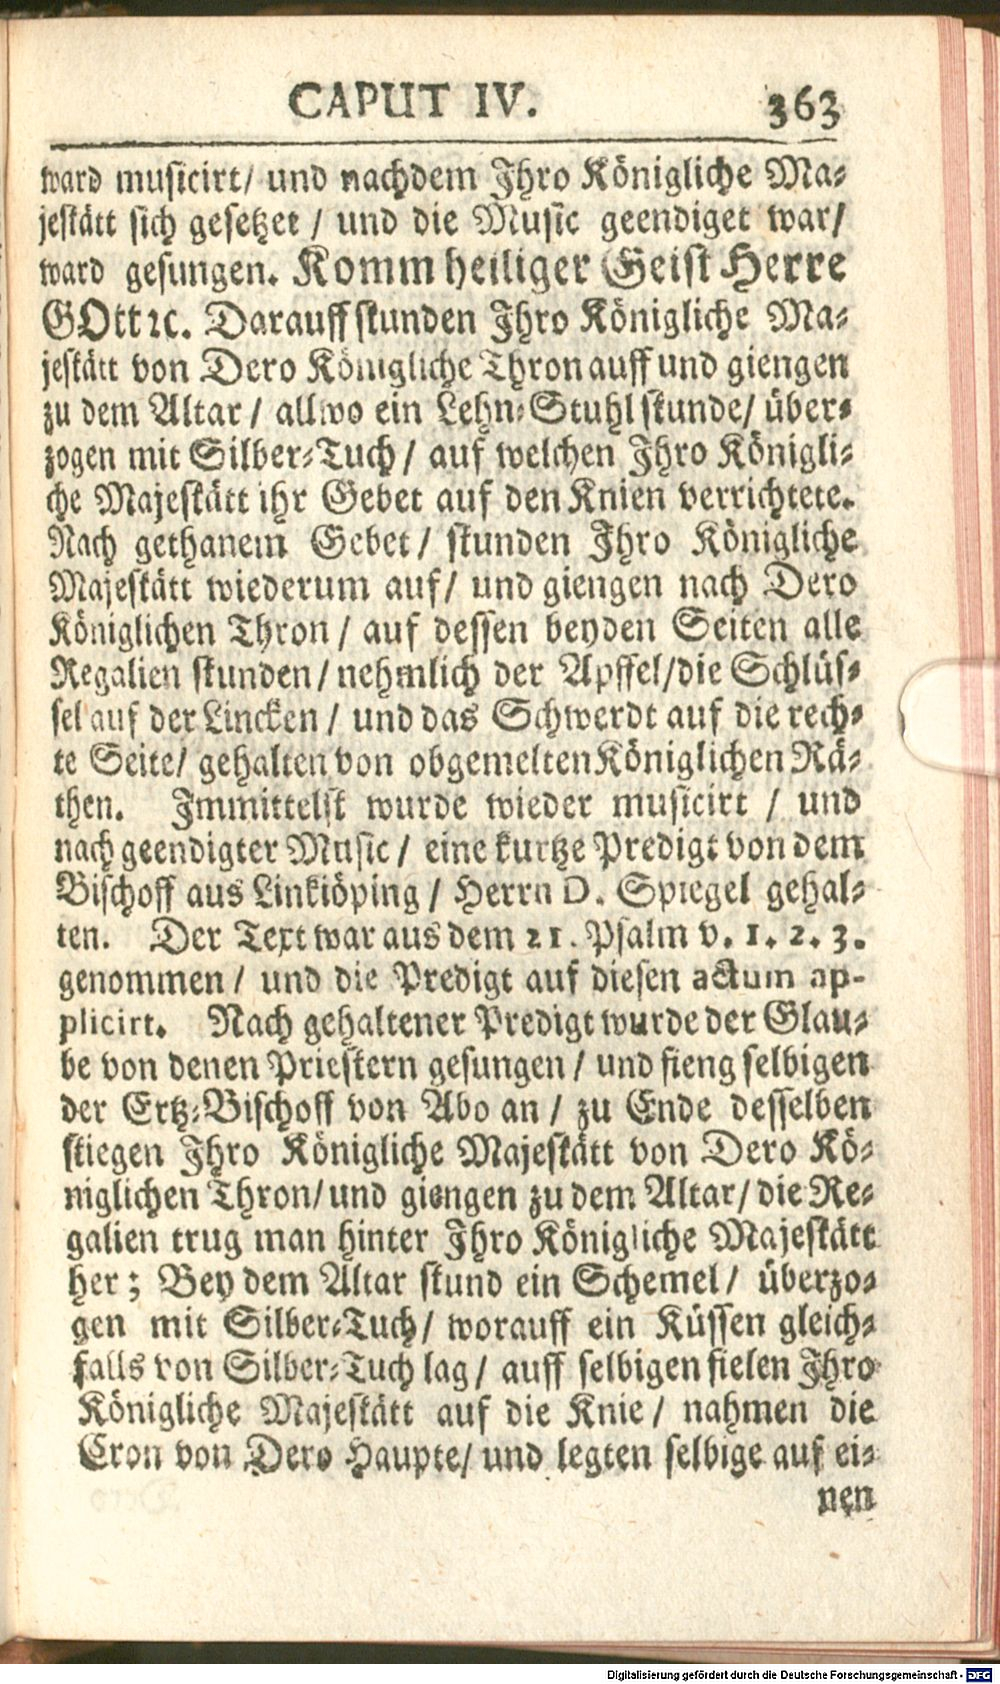 CAPUT IV. 363
ward musicirt/ und nachdem Ihro Königliche Ma-
jestätt sich gesetzet / und die Music geendiget war/
ward gesungen. Komm heiliger Geist Herre
GOtt ꝛc. Darauff stunden Ihro Königliche Ma-
jestätt von Dero Königliche Thron auff und giengen
zu dem Altar / allwo ein Lehn-Stuhl stunde/ über-
zogen mit Silber-Tuch / auf welchen Ihro Königli-
che Majestätt ihr Gebet auf den Knien verrichtete.
Nach gethanem Gebet / stunden Ihro Königliche
Majestätt wiederum auf/ und giengen nach Dero
Königlichen Thron / auf dessen beyden Seiten alle
Regalien stunden / nehmlich der Apffel/die Schlüs-
sel auf der Lincken / und das Schwerdt auf die rech-
te Seite/ gehalten von obgemelten Königlichen Rä-
then. Immittelst wurde wieder musicirt / und
nach geendigter Music / eine kurtze Predigt von dem
Bischoff aus Linkiöping / Herrn D. Spiegel gehal-
ten. Der Text war aus dem 21. Psalm v. 1. 2. 3.
genommen / und die Predigt auf diesen actum ap-
plicirt. Nach gehaltener Predigt wurde der Glau-
be von denen Priestern gesungen / und fieng selbigen
der Ertz-Bischoff von Abo an / zu Ende desselben
stiegen Ihro Königliche Majestätt von Dero Kö-
niglichen Thron/ und giengen zu dem Altar/ die Re-
galien trug man hinter Ihro Königliche Majestätt
her; Bey dem Altar stund ein Schemel / überzo-
gen mit Silber-Tuch/ worauff ein Küssen gleich-
falls von Silber-Tuch lag / auff selbigen fielen Ihro
Königliche Majestätt auf die Knie / nahmen die
Cron von Dero Haupte/ und legten selbige auf ei-
nen
Digitalisierung gefördert durch die Deutsche Forschungsgemeinschaft - DFG